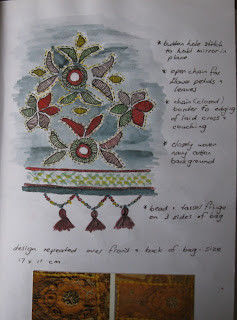 * button hole stitch
to hold mirror in
place
* open chain for
flower petals +
leaves
* chain (closed)
border to edging
of laid cross +
couching
* closely woven
navy cotton
background
* bead + tassel fringe
on 3 sides of bag
design repeated over front + back of bag - size
17 x 11 cm